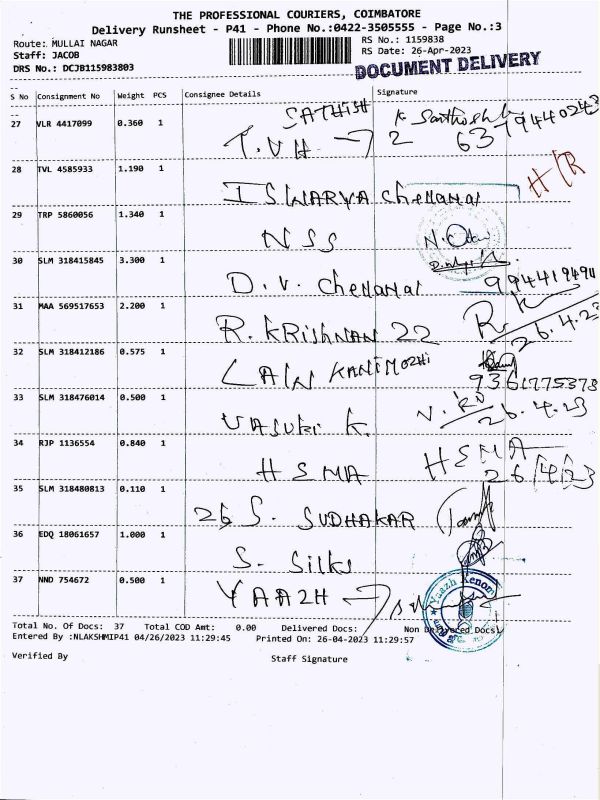 THE PROFESSIONAL COURIERS, COIMBATORE
Delivery Runsheet - P41 - Phone No.:0422-3505555 - Page No.:3
Route: MULLAI NAGAR RS No.: 1159838
Staff: JACOB RS Date: 26-Apr-2023
DRS No.: DCJB115983803 DOCUMENT DELIVERY
S No Consignment No Weight PCS Consignee Details Signature
SATHISH
27 VLR 4417099 0.360 1 T.V.H 2
28 TVL 4585933 1.190 1 H/R
ISWARYA Chellamal
29 TRP 5860056 1.340 1
NSS
30 SLM 318415845 3.300 1
D.V. Chellamal
31 MAA 569517653 2.200 1 R.K
R. KRISHNAN 22 26.4.23
32 SLM 318412186 0.575 1
LAIN KANIMOZHI 9361775378
33 SLM 318476014 0.500 1 26.4.23
VASUKI K.
34 RJP 1136554 0.840 1 HEMA
HEMA 26/4/23
35 SLM 318480813 0.110 1
26 S. SUDHAKAR
36 EDQ 18061657 1.000 1
S. Silks
37 NND 754672 0.500 1 Yaazh Xenom
YAAZH
Total No. Of Docs: 37 Total COD Amt: 0.00 Delivered Docs: Non Delivered Docs:
Entered By :NLAKSHMIP41 04/26/2023 11:29:45 Printed On: 26-04-2023 11:29:57
Verified By Staff Signature